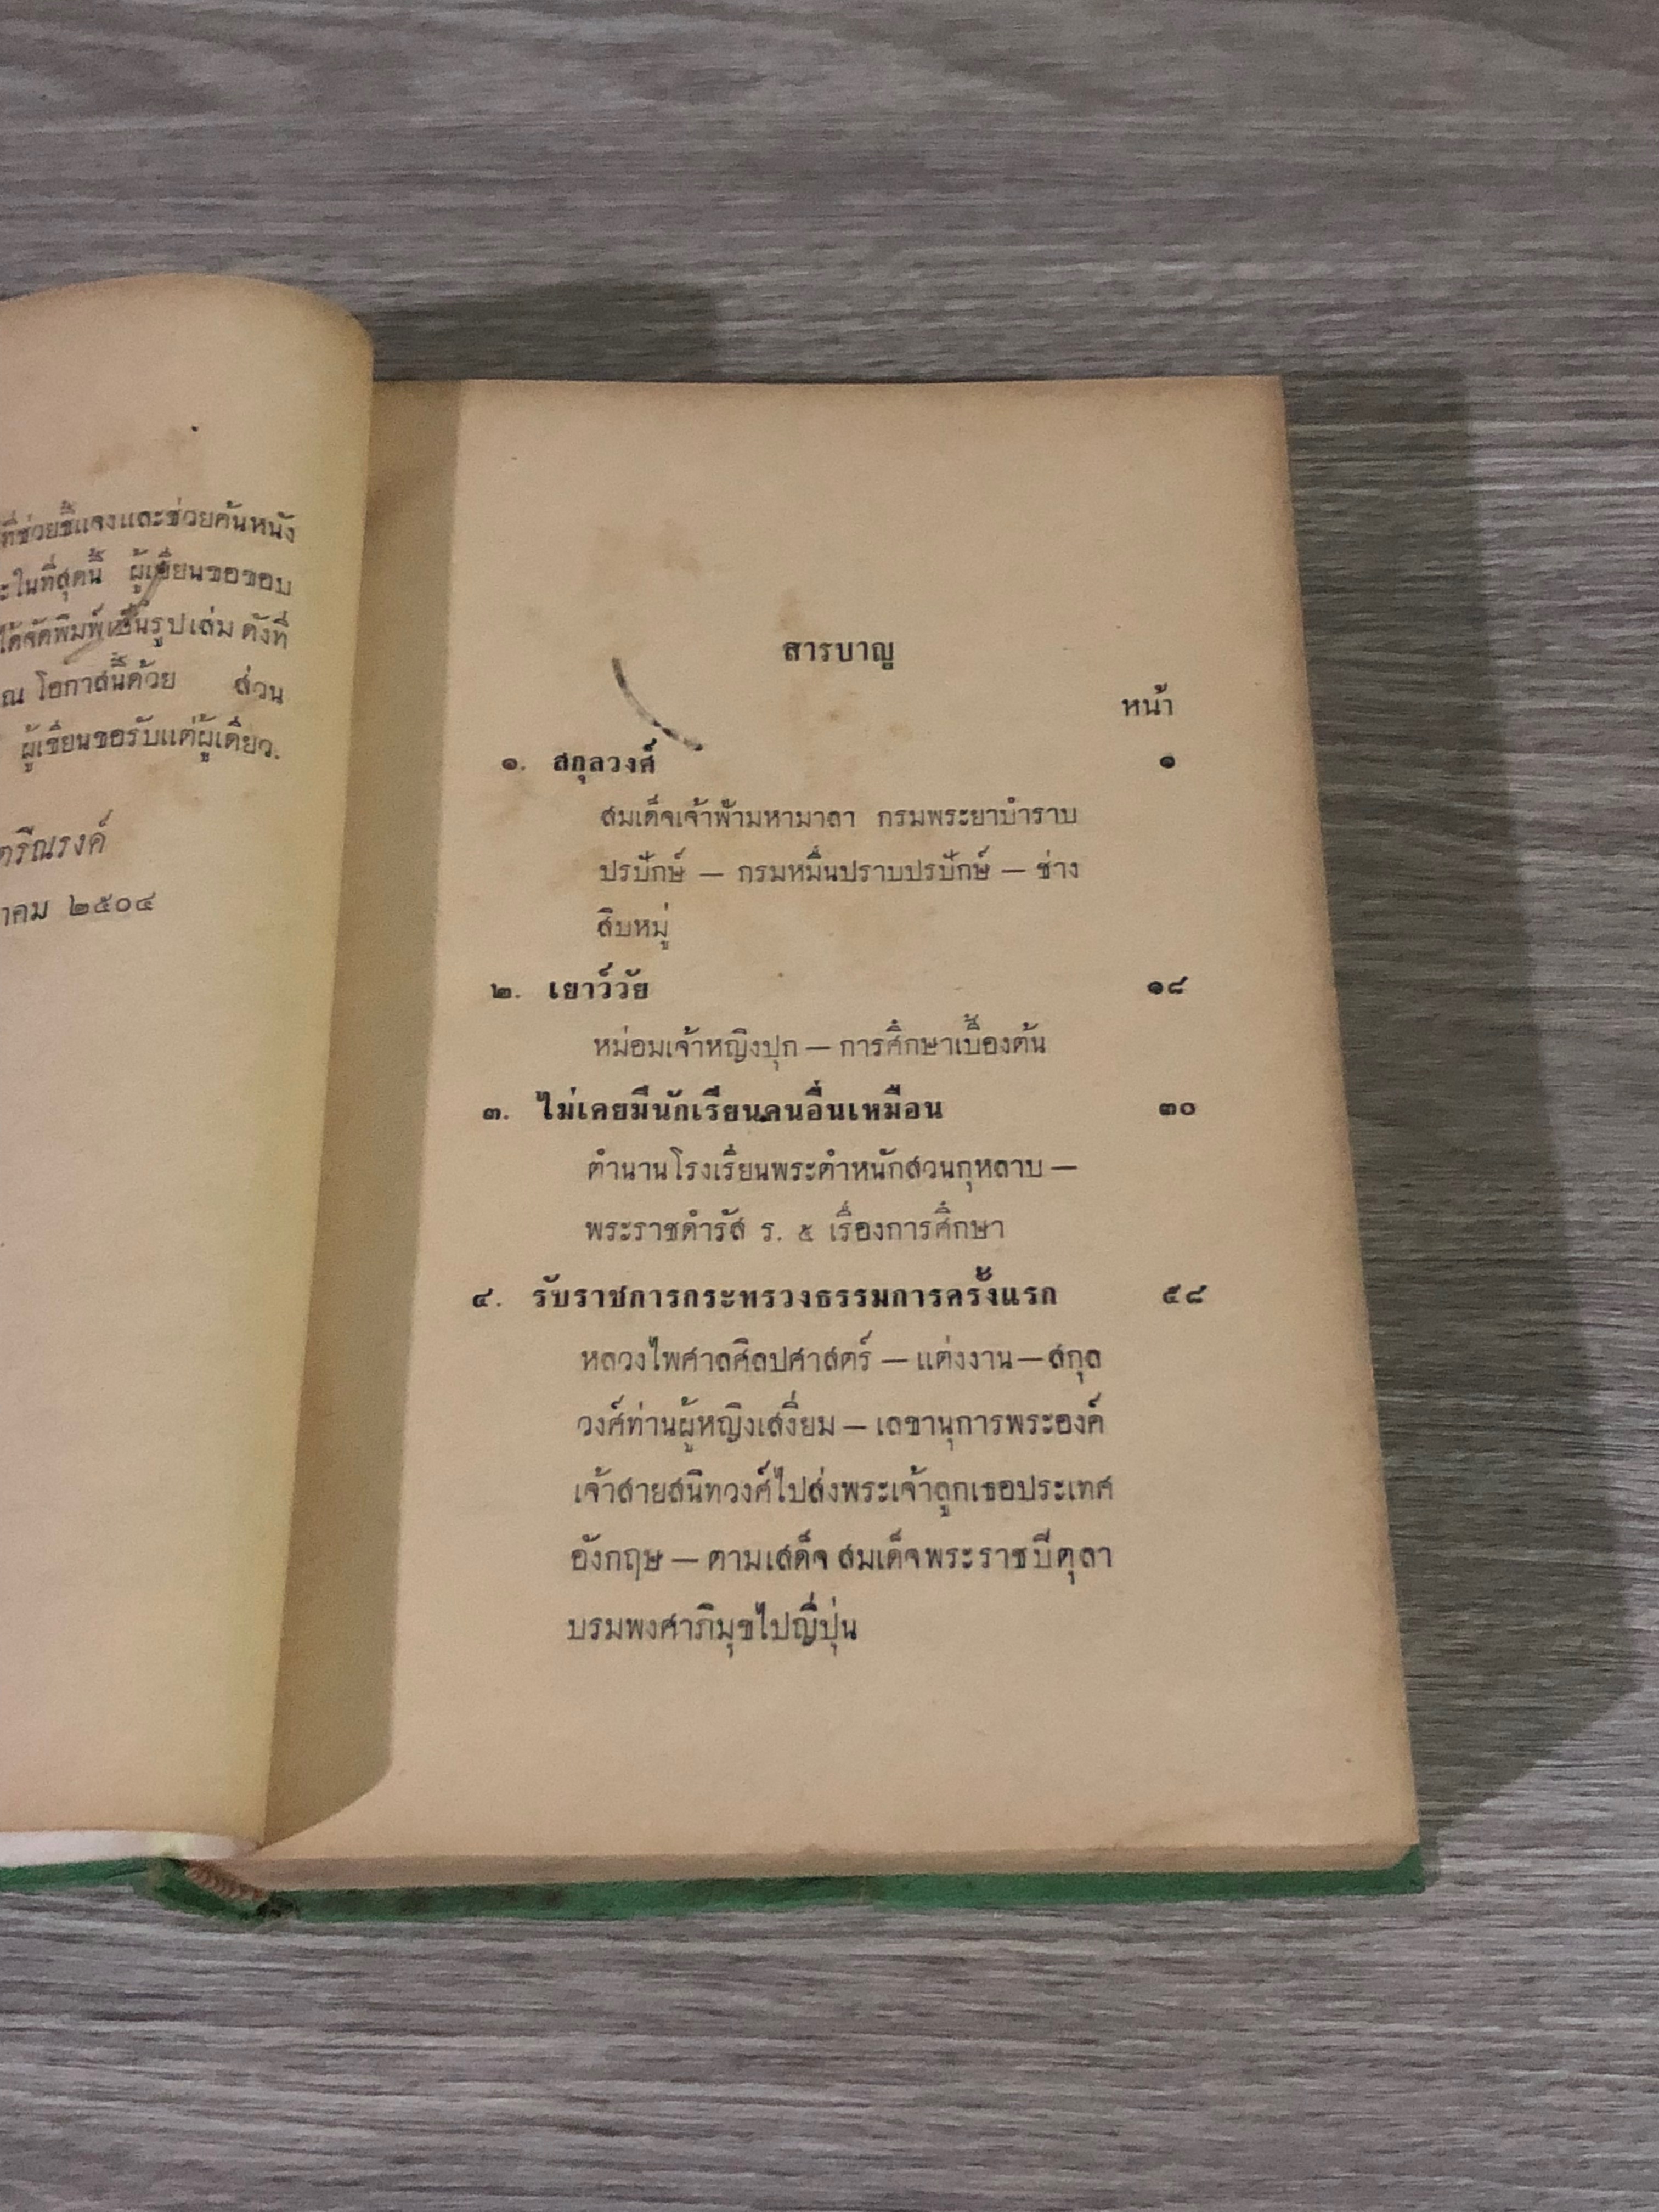 ที่ช่วยชี้แจงและช่วยค้นหนัง
ะในที่สุดนี้ ผู้เขียนขอขอบ
ได้จัดพิมพ์เป็นรูปเล่ม ดังที่
ณ โอกาสนี้ด้วย ส่วน
ผู้เขียนขอรับแต่ผู้เดียว.
ตรีณรงค์
าคม ๒๕๐๔
สารบาญ
หน้า
๑. สกุลวงศ์ ๑
สมเด็จเจ้าฟ้ามหามาลา กรมพระยาบำราบ
ปรปักษ์ — กรมหมื่นปราบปรปักษ์ — ช่าง
สิบหมู่
๒. เยาว์วัย ๑๘
หม่อมเจ้าหญิงปุก — การศึกษาเบื้องต้น
๓. ไม่เคยมีนักเรียนคนอื่นเหมือน ๓๐
ตำนานโรงเรียนพระตำหนักสวนกุหลาบ —
พระราชดำรัส ร. ๕ เรื่องการศึกษา
๔. รับราชการกระทรวงธรรมการครั้งแรก ๕๘
หลวงไพศาลศิลปศาสตร์ — แต่งงาน — สกุล
วงศ์ท่านผู้หญิงเสงี่ยม — เลขานุการพระองค์
เจ้าสายสนิทวงศ์ไปส่งพระเจ้าลูกเธอประเทศ
อังกฤษ — ตามเสด็จ สมเด็จพระราชปีตุลา
บรมพงศาภิมุขไปญี่ปุ่น